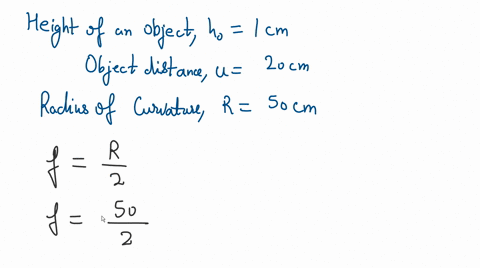 Height of an object, h₀ = 1 cm
Object distance, u = 20 cm
Radius of Curvature, R = 50 cm
f = R/2
f = 50/2